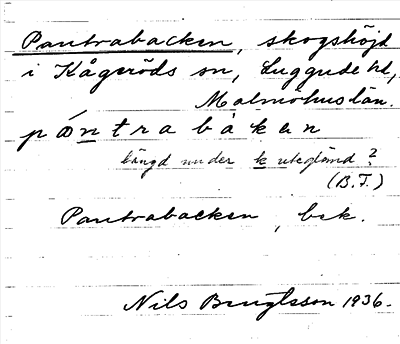 Pantrabacken, skogshöjd
i Kågeröds sn, Luggude hd,
Malmöhus län.
pántrabàken
längd under k uteglömd?
(B.T.)
Pantrabacken, bek.
Nils Bengtsson 1936.